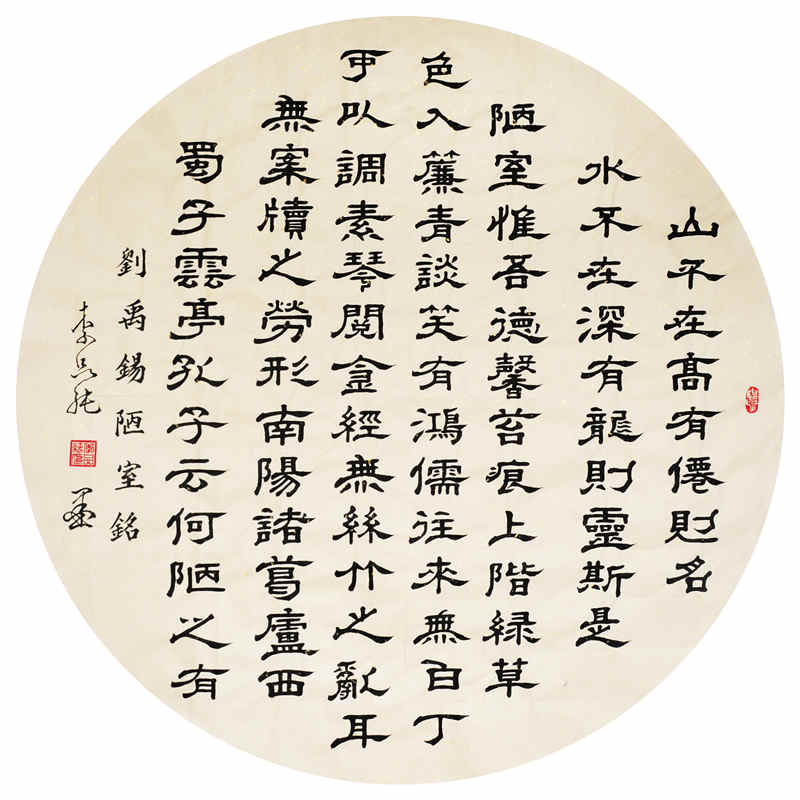 山不在高有僊則名
水不在深有龍則靈斯是
陋室惟吾德馨苔痕上階緑草
色入簾青談笑有鴻儒往來無白丁
可以調素琴閱金經無絲竹之亂耳
無案牘之勞形南陽諸葛廬西
蜀子雲亭孔子云何陋之有
劉禹錫陋室銘
李